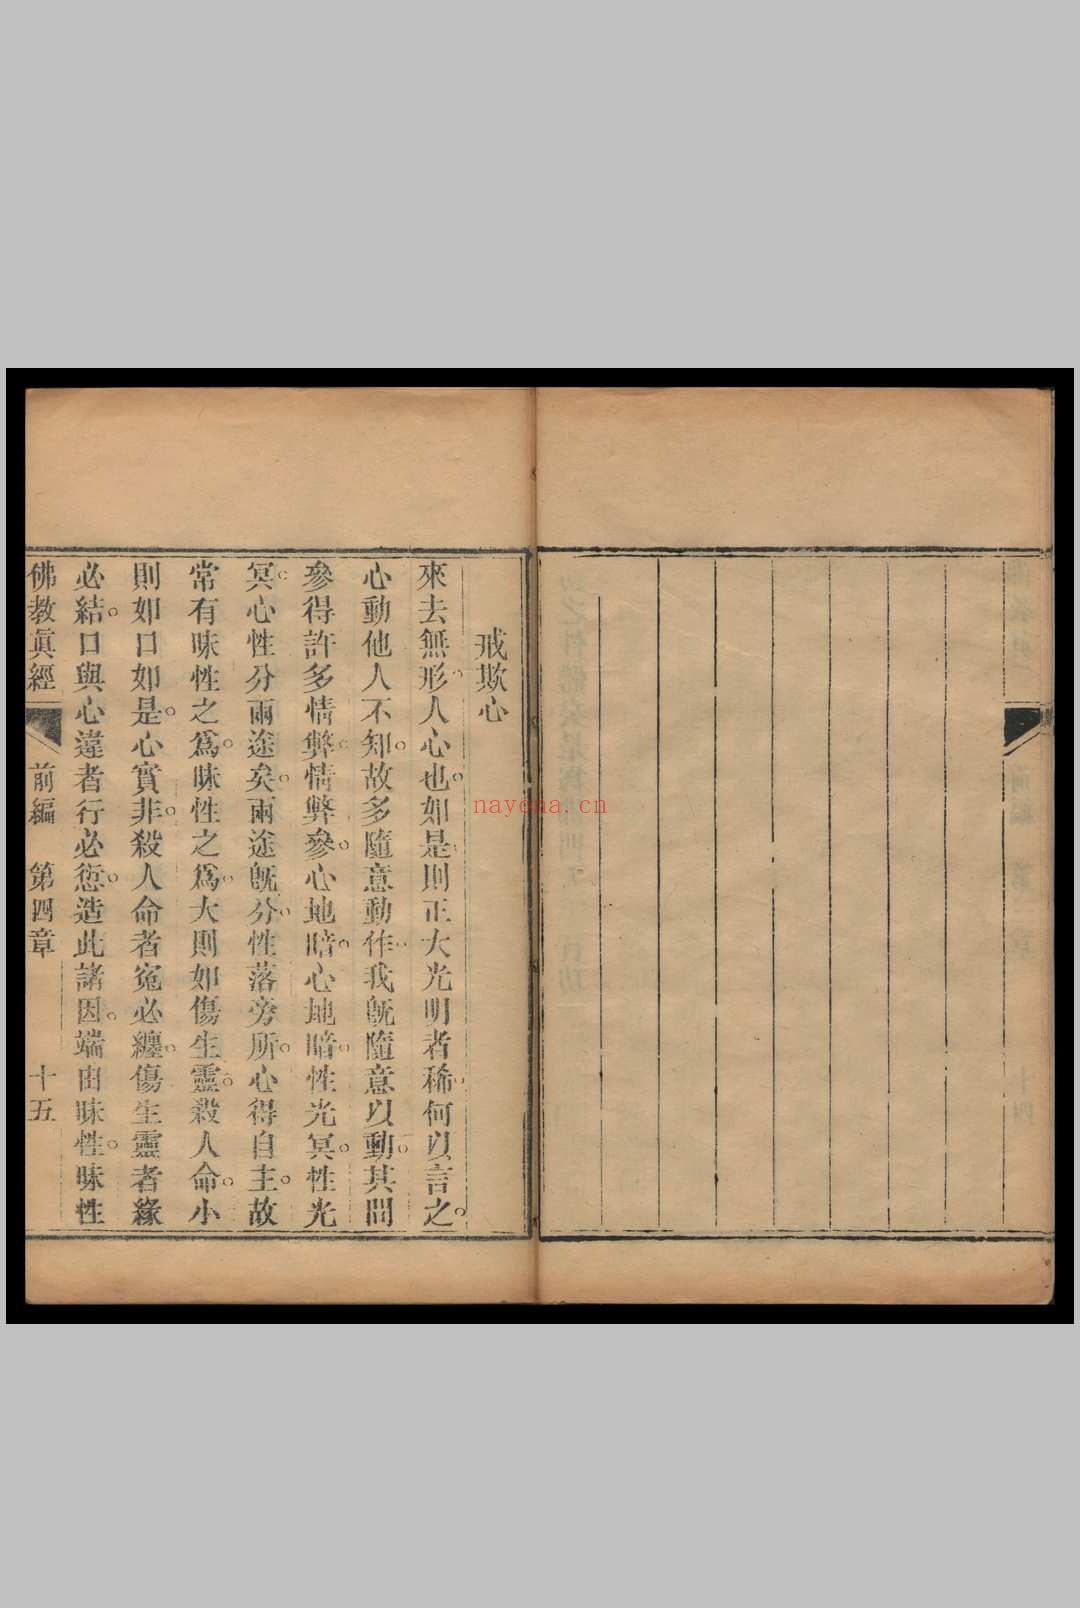 戒欺心
來去無形。人心也。如是。則正大光明者稀。何以言之。
心動他人不知。故多隨意動作。我既隨意以動。其間
參得許多情弊。情弊參。心地暗。心地暗。性光冥。性光
冥。心性分兩途矣。兩途既分。性落旁所。心得自主。故
常有昧性之爲。昧性之爲。大則如傷生靈。殺人命。小
則如口如是。心實非。殺人命者寃必纏。傷生靈者緣
必結。口與心違者行必愆。造此諸因。端由昧性。昧性
佛教眞經 前編 第四章 十五
nayona.cn